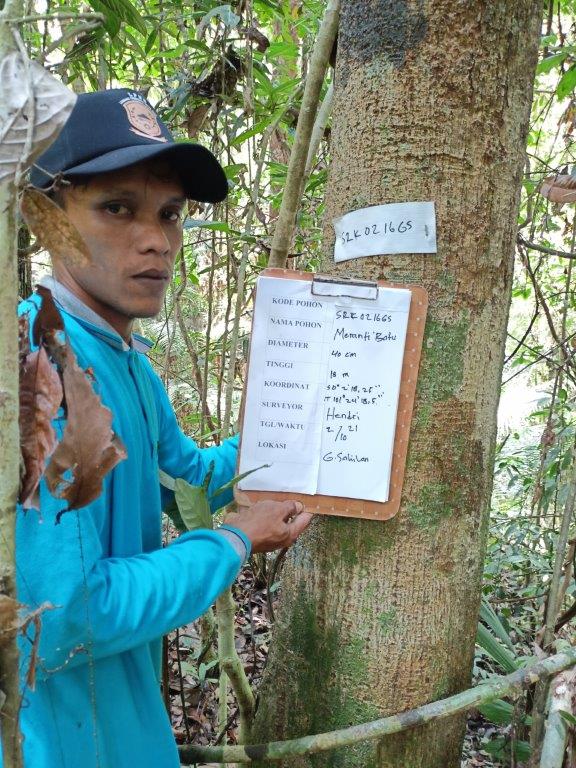 SRK0216GS
KODE POHON SRK0216GS
NAMA POHON Meranti Batu
DIAMETER 40 cm
TINGGI 18 m
KOORDINAT S0° 2' 18,25"
T 101° 24' 18,5"
SURVEYOR Hendri
TGL/WAKTU 2/10 21
LOKASI G. Sahilan